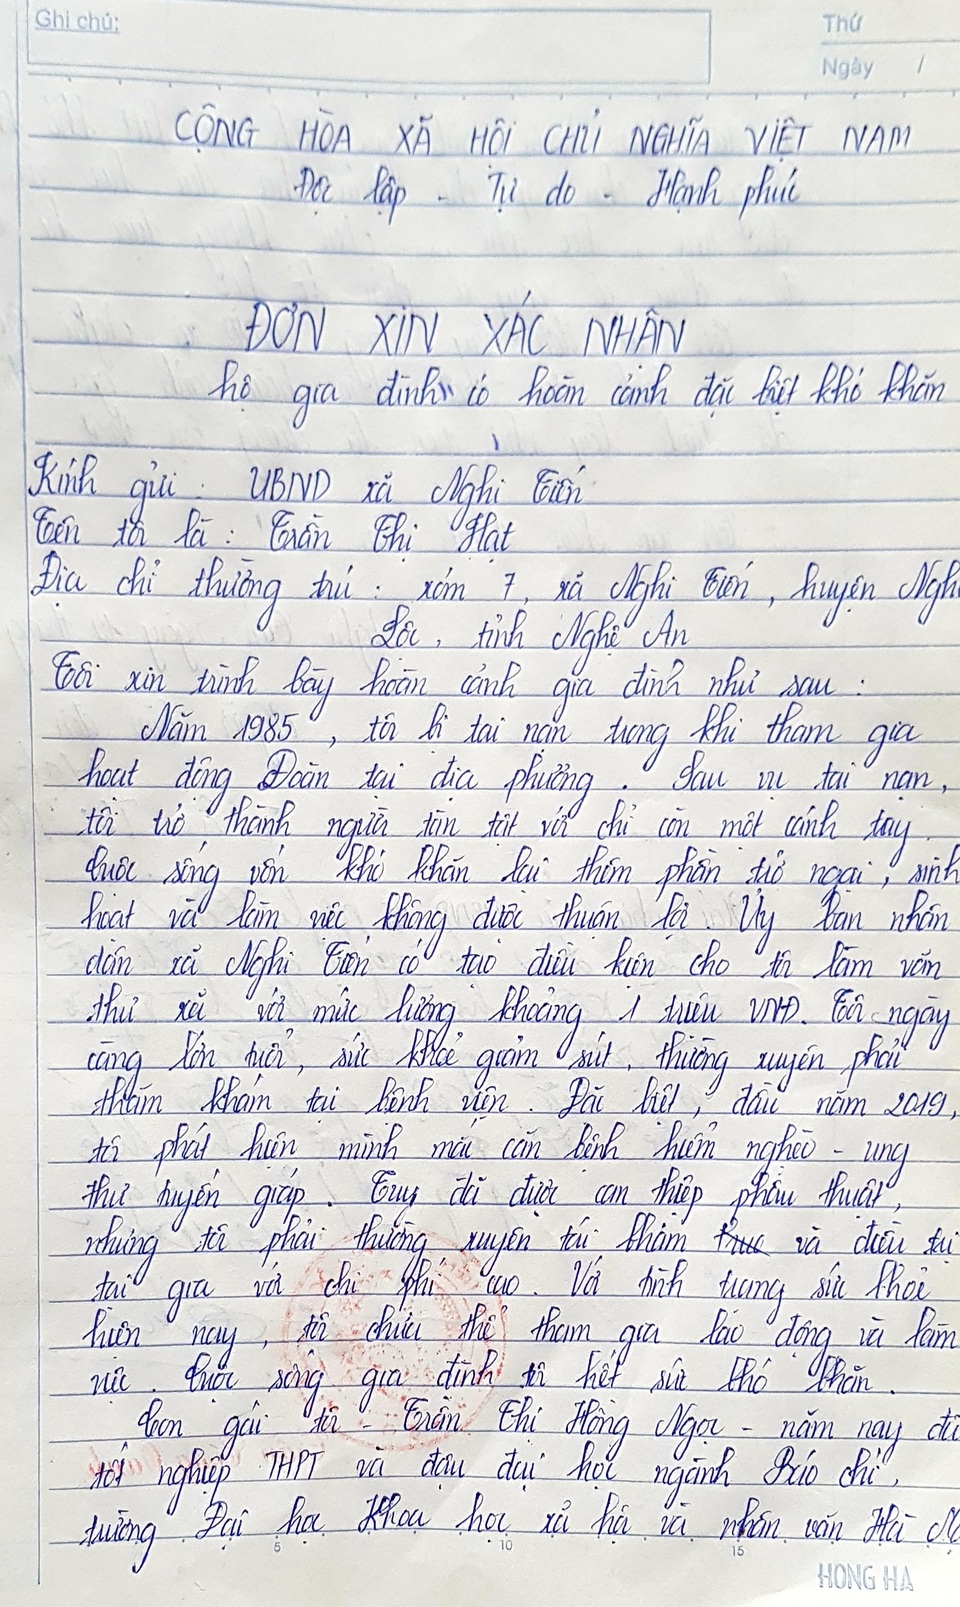 Ghi chú:
Thứ
Ngày /
CỘNG HÒA XÃ HỘI CHỦ NGHĨA VIỆT NAM
Độc lập - Tự do - Hạnh phúc
ĐƠN XIN XÁC NHẬN
hộ gia đình có hoàn cảnh đặc biệt khó khăn
Kính gửi: UBND xã Nghi Tiến
Tên tôi là: Trần Thị Hạt
Địa chỉ thường trú: xóm 7, xã Nghi Tiến, huyện Nghi
Lộc, tỉnh Nghệ An
Tôi xin trình bày hoàn cảnh gia đình như sau:
Năm 1985, tôi bị tai nạn trong khi tham gia
hoạt động Đoàn tại địa phương. Sau vụ tai nạn,
tôi trở thành người tàn tật với chỉ còn một cánh tay.
Cuộc sống vốn khó khăn lại thêm phần trở ngại, sinh
hoạt và làm việc không được thuận lợi. Ủy ban nhân
dân xã Nghi Tiến có tạo điều kiện cho tôi làm văn
thư xã với mức lương khoảng 1 triệu VNĐ. Tôi ngày
càng lớn tuổi, sức khoẻ giảm sút, thường xuyên phải
thăm khám tại bệnh viện. Đặc biệt, đầu năm 2019,
tôi phát hiện mình mắc căn bệnh hiểm nghèo - ung
thư tuyến giáp. Tuy đã được can thiệp phẫu thuật,
nhưng tôi phải thường xuyên tái khám và điều trị
tại gia với chi phí cao. Với tình trạng sức khoẻ
hiện nay, tôi chưa thể tham gia lao động và làm
việc. Cuộc sống gia đình tôi hết sức khó khăn.
Con gái tôi - Trần Thị Hồng Ngọc - năm nay đã
tốt nghiệp THPT và đậu đại học ngành Báo chí,
trường Đại học Khoa học xã hội và nhân văn Hà
5 10 15
HONG HA